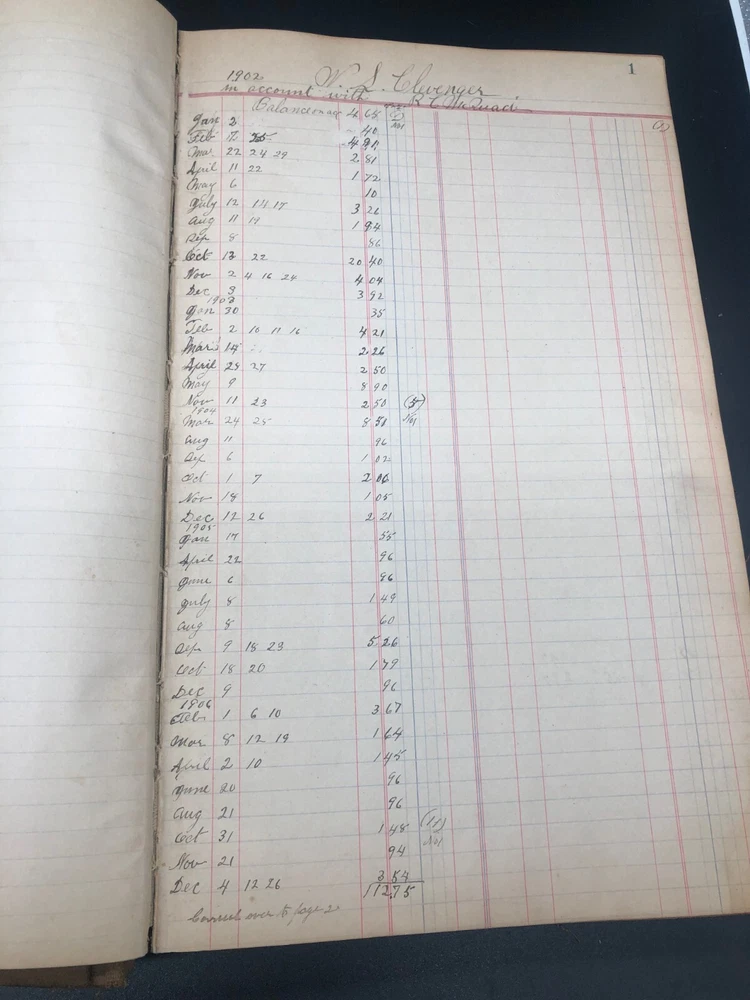 1
1902 W. S. Clevenger
in account with R C McQuad
Balance on acc 4 65
Jan 2 40
Feb 17 4 95
Mar 22 24 29 2 81
April 11 22 1 72
May 6 10
July 12 14 17 3 26
Aug 11 19 1 94
Sep 8 86
Oct 13 22 20 40
Nov 2 4 16 24 4 04
Dec 3 3 92
1903
Jan 30 35
Feb 2 10 11 16 4 21
Mar 14 2 26
April 25 27 2 50
May 9 8 90
Nov 11 23 2 50 (5)
1904
Mar 24 25 8 50
Aug 11 96
Sep 6 1 02
Oct 1 7 2 06
Nov 18 1 05
Dec 12 26 2 21
1905
Jan 17 55
April 22 96
June 6 96
July 8 1 49
Aug 8 60
Sep 9 18 23 5 26
Oct 18 20 1 79
Dec 9 96
1906
Feb 1 6 10 3 67
Mar 8 12 19 1 64
April 2 10 1 45
June 20 96
Aug 21 96
Oct 31 1 48
Nov 21 94
Dec 4 12 26 3 54
112 75
over to page 2